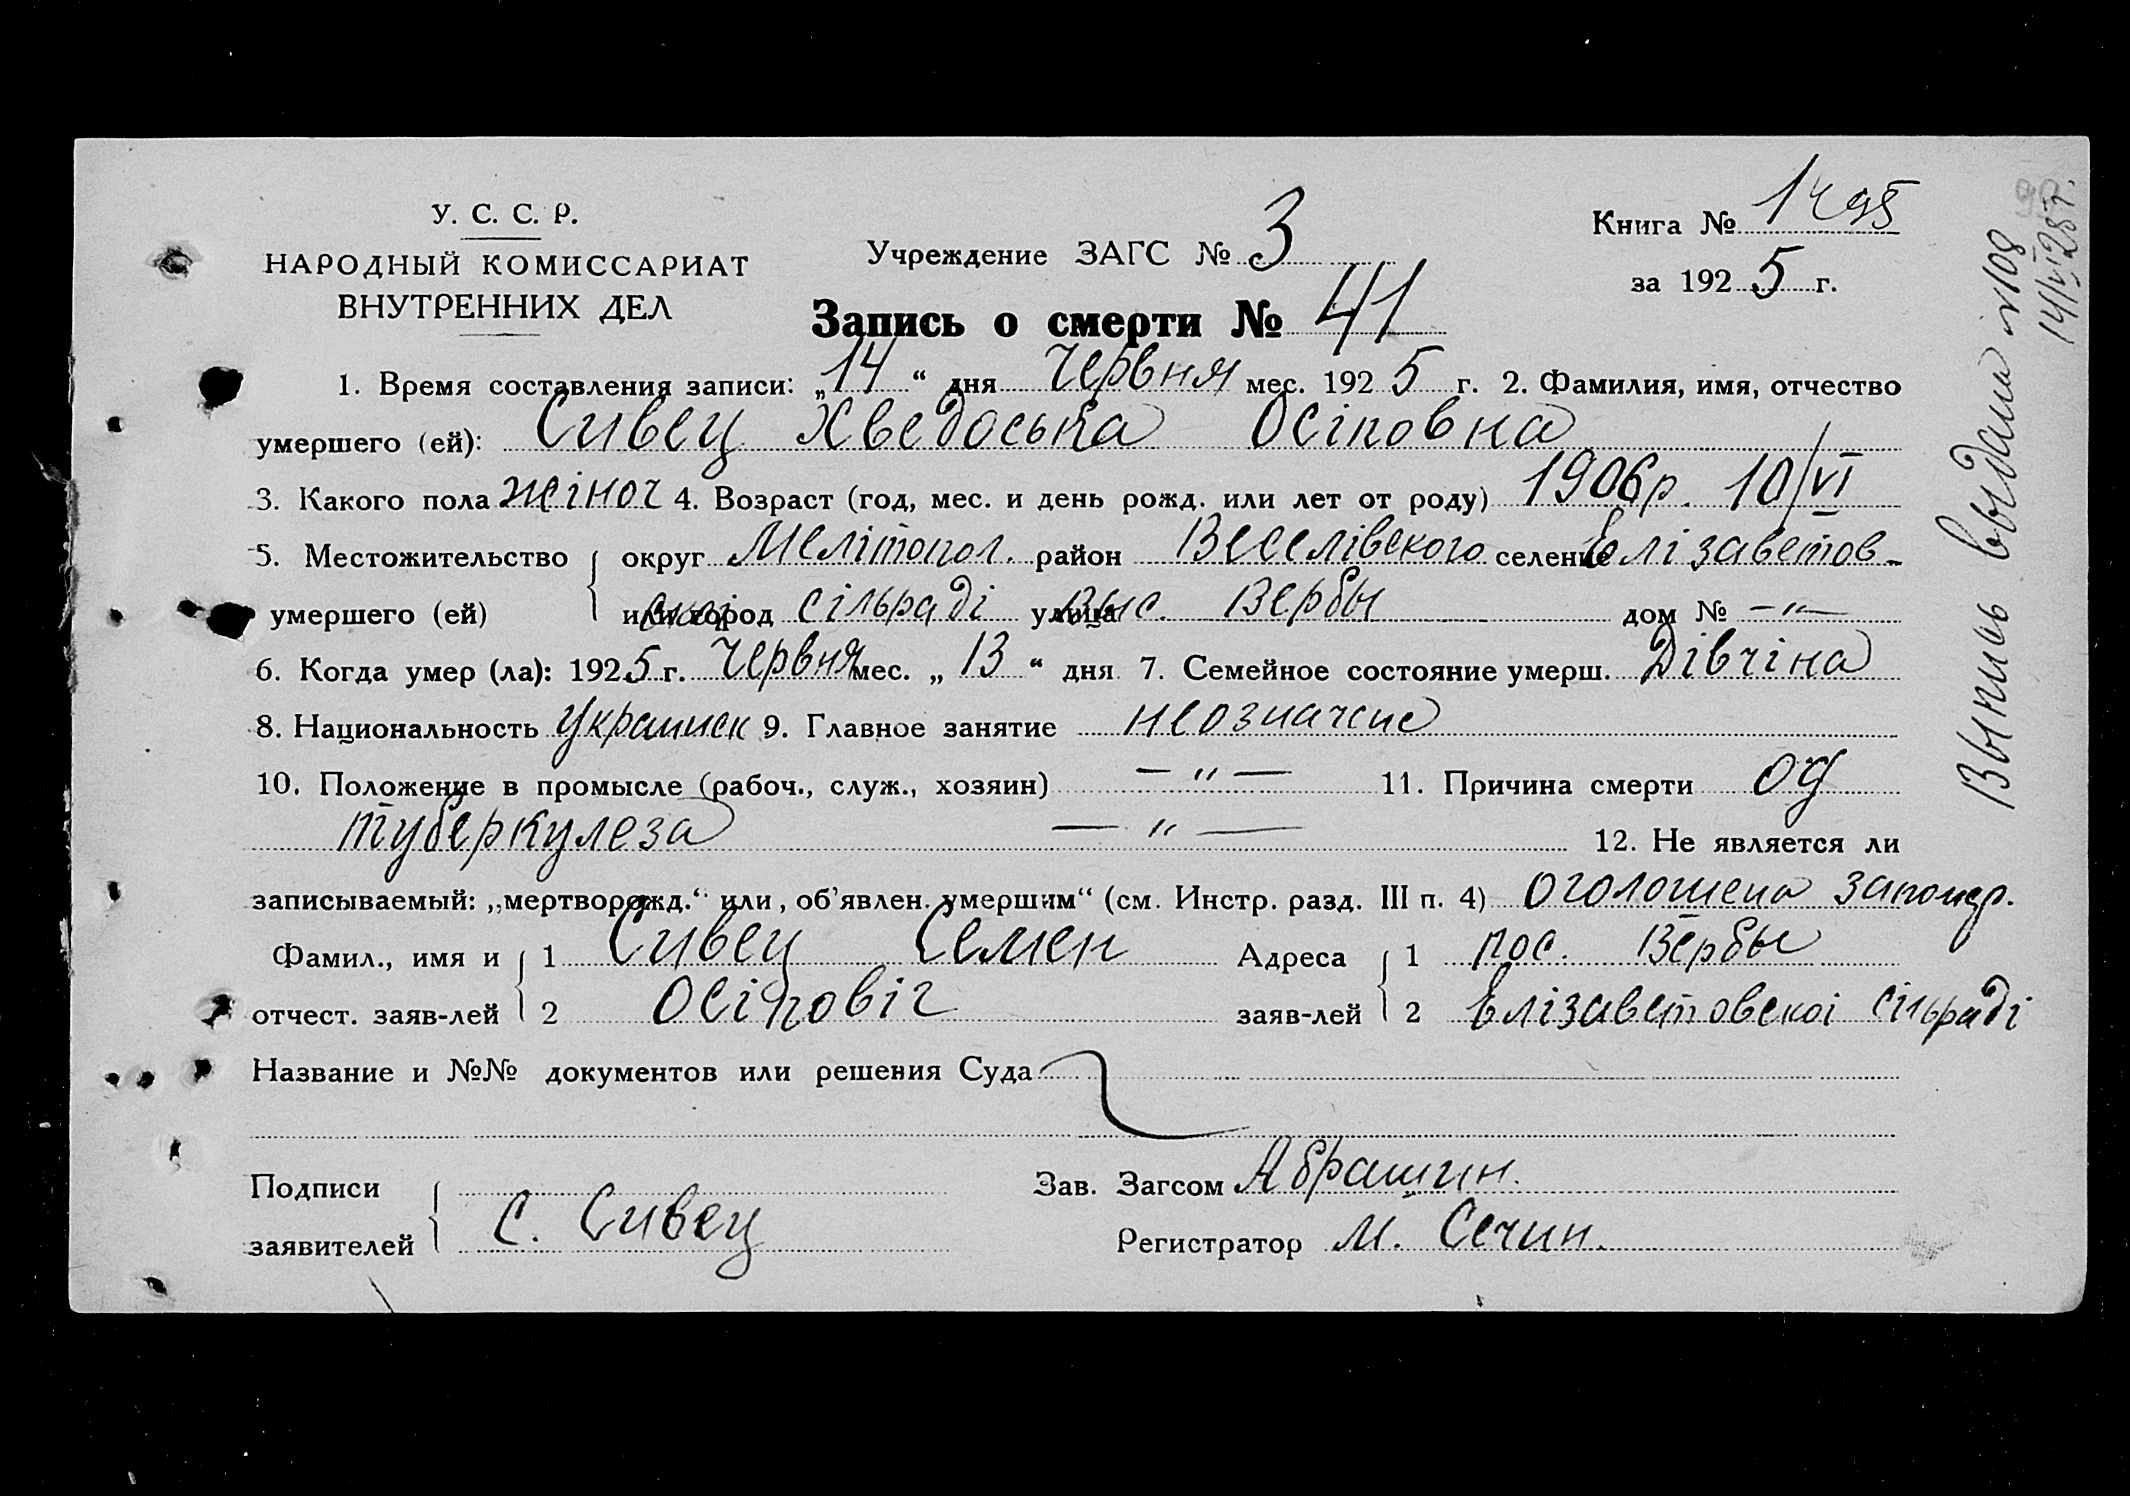 У. С. С. Р.
НАРОДНЫЙ КОМИССАРИАТ
ВНУТРЕННИХ ДЕЛ
Учреждение ЗАГС № 3
Книга №
за 1925 г.
Запись о смерти № 41
1. Время составления записи: „14“ дня Червня мес. 1925 г. 2. Фамилия, имя, отчество
умершего (ей): Сивец Хведоська Осіповна
3. Какого пола жіноч 4. Возраст (год, мес. и день рожд. или лет от роду) 1906р. 10/VI
5. Местожительство умершего (ей) округ Мелітопол. район Веселівского селение Єлізаветов-
или город скої сільраді улица Выс. Вербы дом № —"—
6. Когда умер (ла): 1925 г. Червня мес. „13“ дня 7. Семейное состояние умерш. Дівчіна
8. Национальность Украинск 9. Главное занятие неозначено
10. Положение в промысле (рабоч., служ., хозяин) —"— 11. Причина смерти од
туберкулеза —"— 12. Не является ли
записываемый: „мертворожд.“ или „об'явлен. умершим“ (см. Инстр. разд. III п. 4) оголошена
Фамил., имя и отчест. заяв-лей 1 Сивец Семен
2 Осіповіч
Адреса заяв-лей 1 пос. Вербы
2 Єлізаветовскоі сільраді
Название и №№ документов или решения Суда
Подписи заявителей С. Сивец
Зав. Загсом Абрашин.
Регистратор М. Сечин.
Выпись выдана №108
14/VI 28 г.